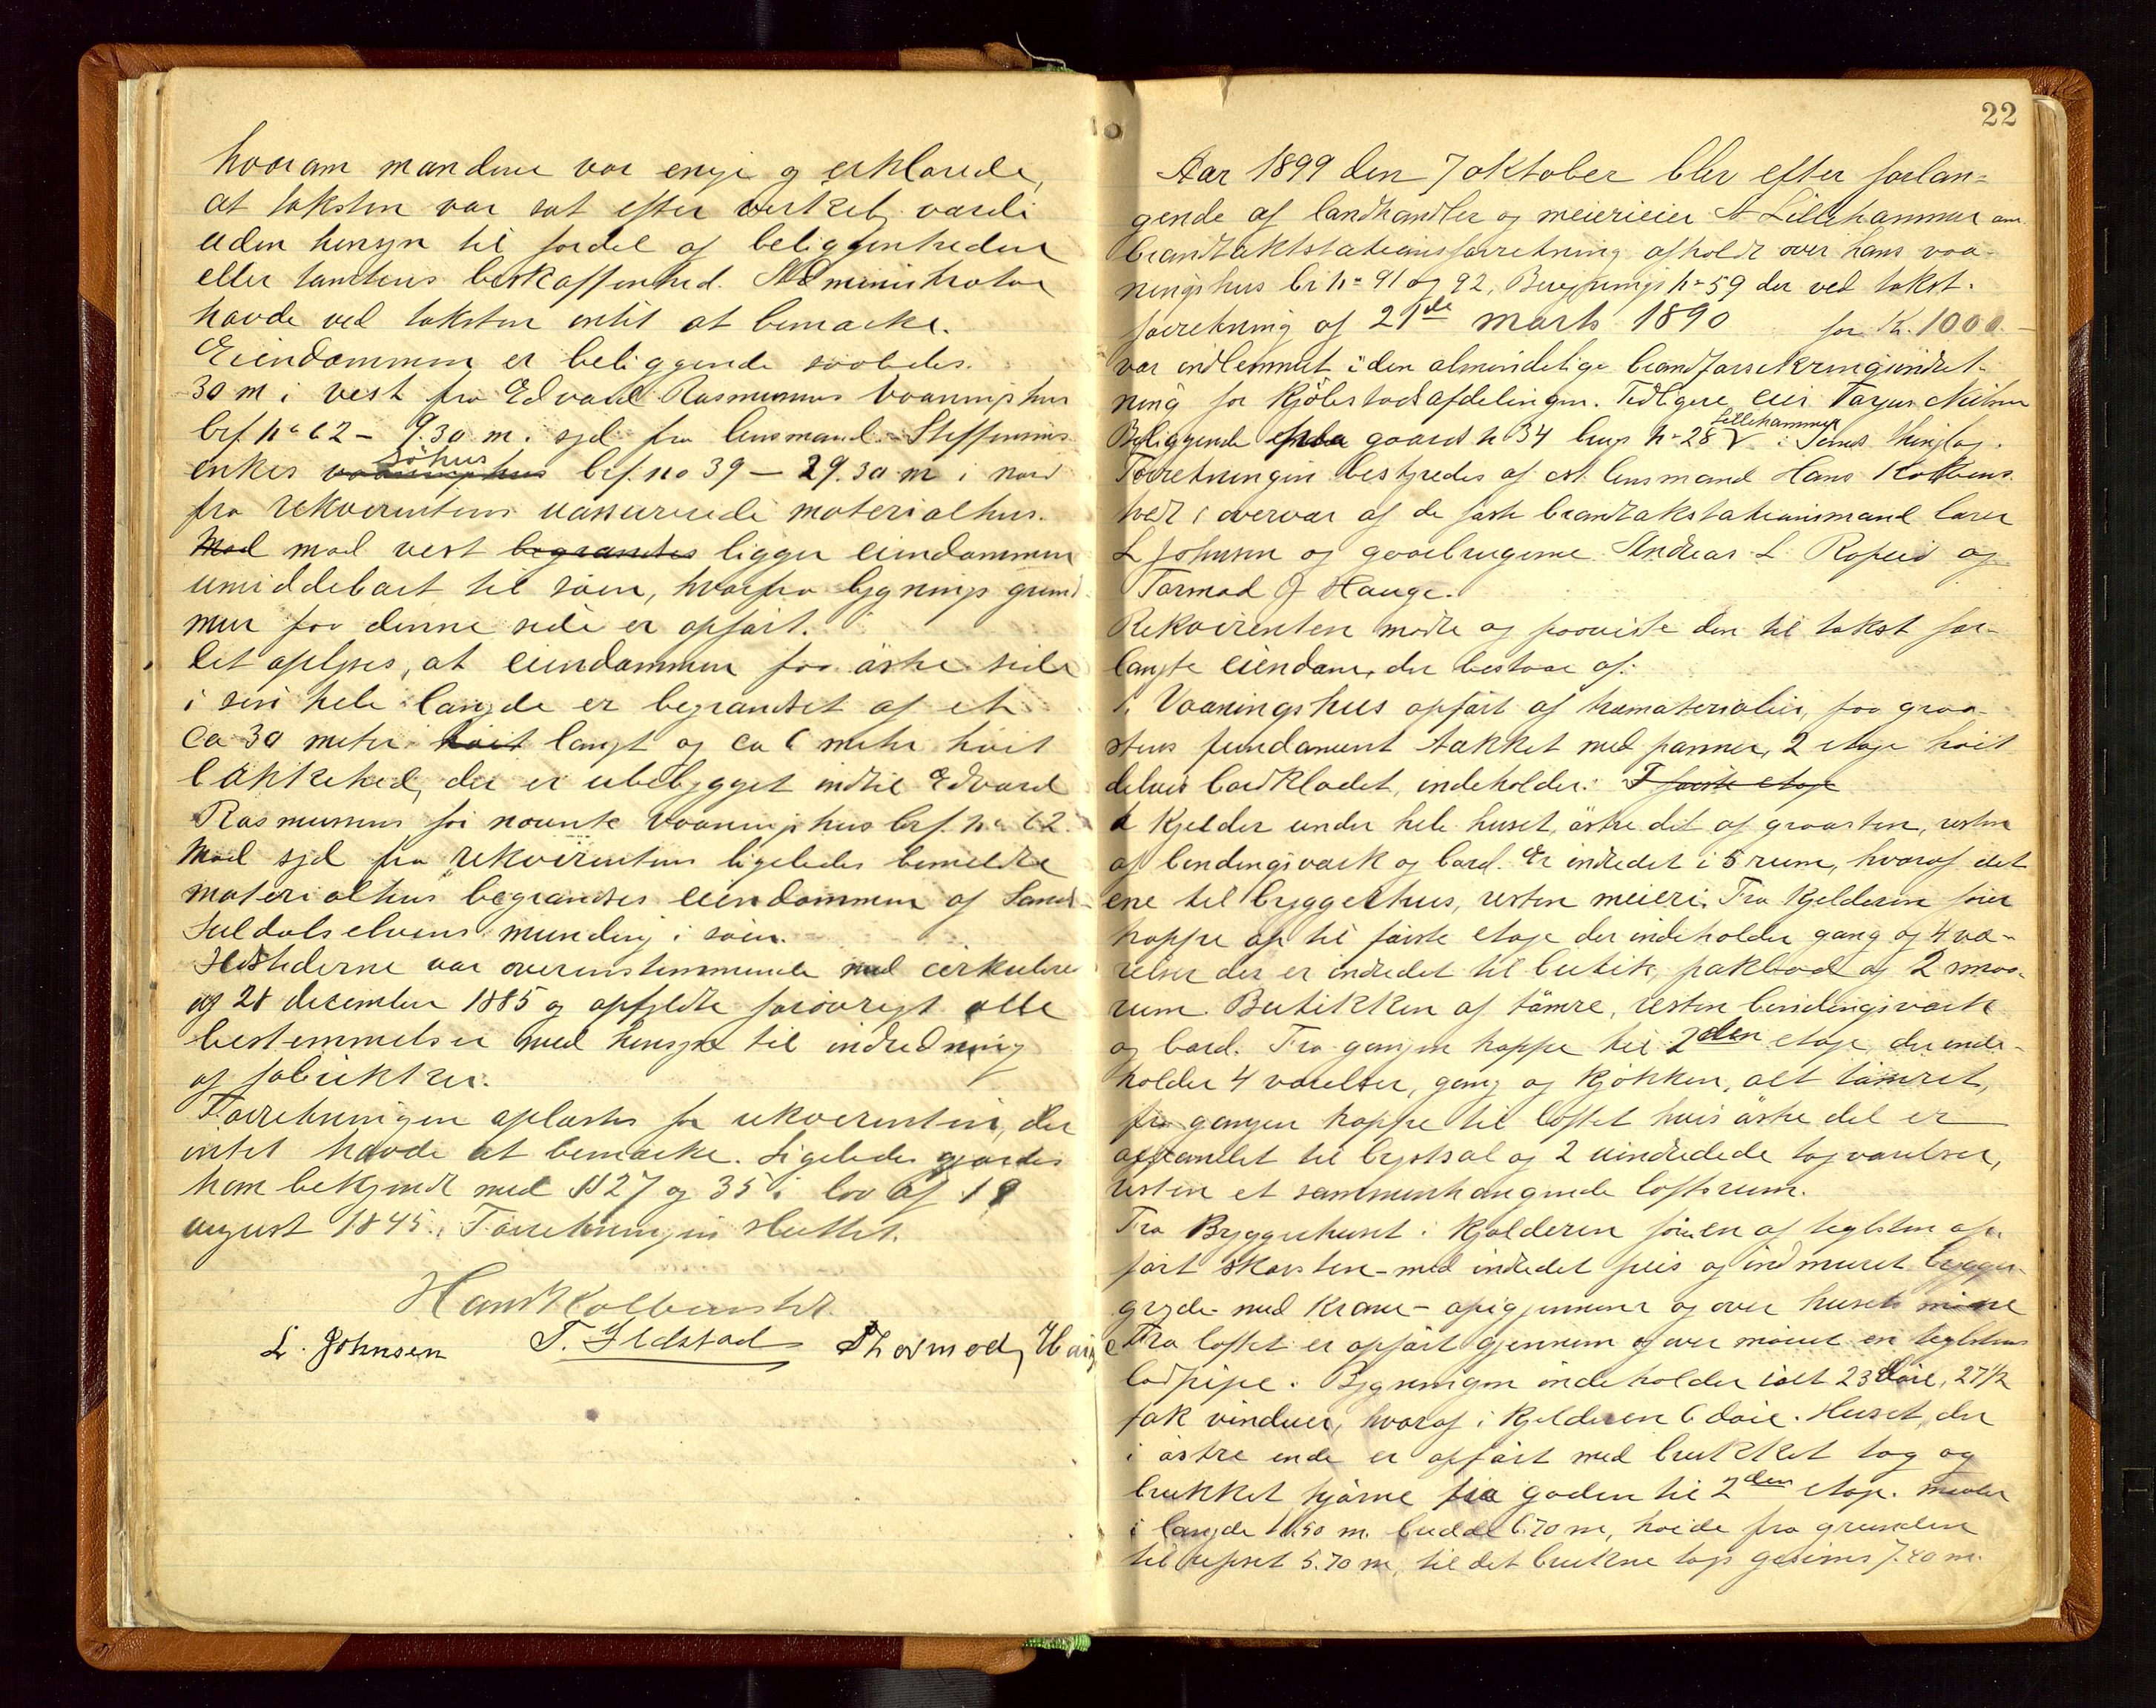 hvorom mændene var enige og erklærede,
at taksten var sat efter verkets værdi
uden hensyn til fordel af beliggenheden
eller tomtens beskaffenhed. Administrator
havde ved taksten intet at bemærke.
Eiendommen er beliggende saaledes.
30 m i vest fra Edvard Rasmussens vaaningshus
brf. no 62 - 9.30 m. syd fra lensmand Steffensens
enkes vaaningshus Söhus brf. no 39 - 29.30 m i nord
fra rekvirentens uassurerede materialhus.
Mod mod vest begrændses ligger eiendommen
umiddelbart til søen, hvorfra bygnings grund
mur paa denne side er opført.
Det oplyses, at eiendommen paa østre side
i sin hele længde er begrændset af et
ca 30 meter høit langt og ca 6 meter høit
bakkehed, der er ubebygget indtil Edvard
Rasmussens før nævnte vaaningshus brf. no 62.
Mod syd fra rekvirentens ligeledes bemeldte
materialhus begrændses eiendommen af Sand
Suldalselvens munding i søen.
Ildstederne var overensstemmende med cirkulære
af 28 december 1885 og opfyldte forøvrigt alle
bestemmelser med hensyn til indredning
af fabrikker.
Forretningen oplæstes for rekvirenten, der
intet havde at bemærke. Ligeledes gjordes
han bekjendt med §§ 27 og 35 i lov af 19
august 1845. Forretningen sluttet.
Hans Kolbenstvedt.
L. Johnsen T. Ildstad Thormod Hauge
22
Aar 1899 den 7 oktober blev efter forlan-
gende af landhandler og meierieier A Lillehammer om
brandtakstationsforretning afholdt over hans vaa-
ningshus br no 91 og 92, Bygnings no 59 der ved takst-
forretning af 21de marts 1890 for Kr. 1000.-
var indlemmet i den almindelige brandforsikringsindret-
ning for Kjöbstadsafdelingen. Tidligere eier Torger Nilsen
Beliggende paa gaards no 34 brugs no 28 Lillehammer i Sands thinglag.
Forretningen bestyredes af cst. lensmand Hans Kolben-
stvedt i overvær af de faste brandtakstationsmænd lærer
L Johnsen og gaardbrugerne Andreas L. Ropeid og
Tormod J Hauge.
Rekvirenten mødte og paaviste den til takst for-
langte eiendom, der bestaar af:
1. Vaaningshus opført af træmaterialier, paa graa-
stens fundament tækket med panner, 2 etage høit
delvis bordklædet, indeholder: I første etage
a Kjelder under hele huset, østre del af graasten, resten
af bindingsværk og bord. Er indredet i 5 rum, hvoraf det
ene til bryggerhus, resten meieri. Fra kjelderen fører
trappe op til første etage der indeholder gang og 4 væ-
relser der er indredet til butik, pakbod og 2 smaa-
rum. Butikken af tømre, resten bindingsværk
og bord. Fra gangen trappe til 2den etage, der inde-
holder 4 værelser, gang og kjøkken, alt tømret,
fra gangen trappe til loftet hvis østre del er
afpanelet til brystsal og 2 uindredede tagværelser,
resten et sammenhængende loftsrum.
Fra Bryggerhuset i kjælderen fører en af teglsten op-
ført skorsten - med indredet peis og indmuret brygger-
gryde - med krane - opigjennem og over husets møne
Fra loftet er opført gjennem og over mønet en teglstens
lodpipe. Bygningen indeholder ialt 23 døre, 27 1/2
fak vinduer, hvoraf i kjelderen 6 døre. Huset, der
i østre ende er opført med brukket tag og
brukket hjørne fra gaden til 2den etage. maaler
i længde 11.50 m. bredde 6.70 m, høide fra grunden
til refset 5.70 m, til det brukne tags gesims 7.40 m.